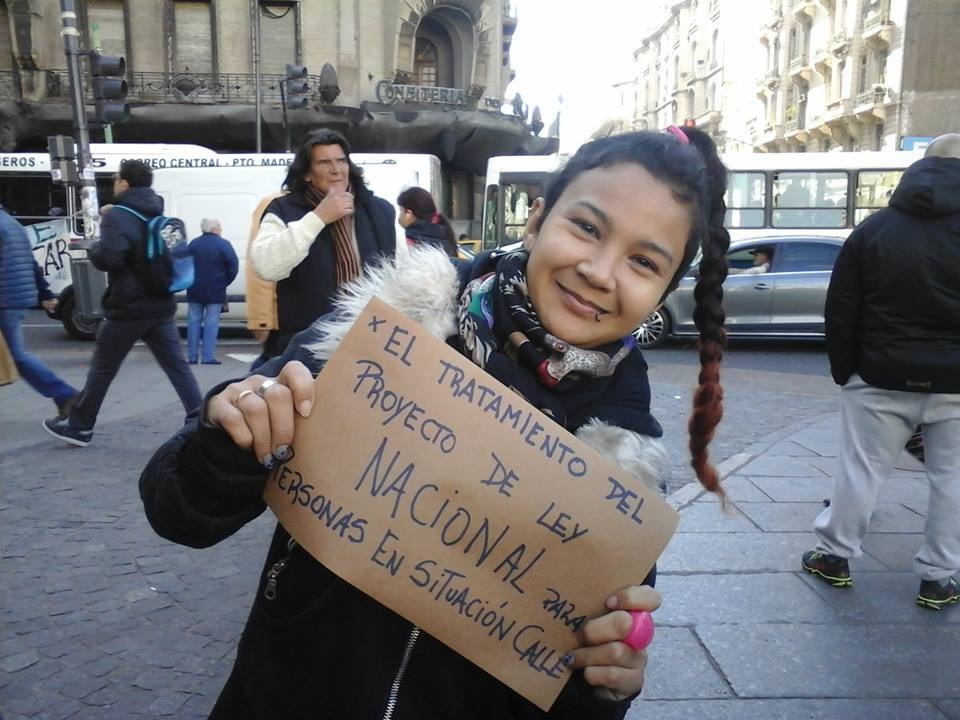 CONFITERIA
EROS
5 CORREO CENTRAL - PTO. MADE
x EL TRATAMIENTO DEL
PROYECTO DE LEY
NACIONAL PARA
PERSONAS EN SITUACIÓN CALLE